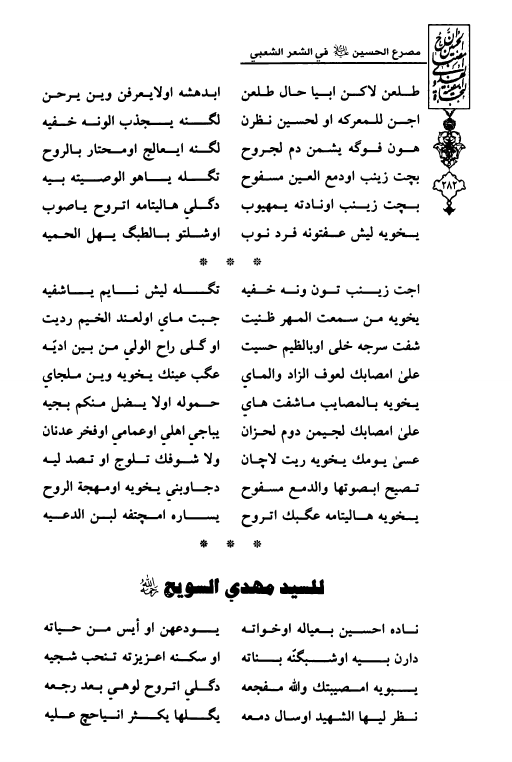 مصرع الحسين ﷺ في الشعر الشعبي
٢٨٢
طلعن لاكن ابيا حال طلعن ابدهشه اولايعرفن وين يرحن
اجن للمعركه او لحسين نظرن لگنه يجذب الونه خفيه
هون فوگه يشمن دم لجروح لگنه ايعالج اومحتار بالروح
بچت زينب اودمع العين مسفوح تگله ياهو الوصيته بيه
بچت زينب اونادته يمهيوب دگلي هاليتامه اتروح ياصوب
يخويه ليش عفتونه فرد نوب اوشلتو بالطبگ يهل الحميه
* * *
اجت زينب تون ونه خفيه تگله ليش نايم ياشفيه
يخويه من سمعت المهر ظنيت جبت ماي اولعند الخيم رديت
شفت سرجه خلى اوبالظيم حسيت او گلى راح الولي من بين اديّه
على امصابك لعوف الزاد والماي عگب عينك يخويه وين ملجاي
يخويه بالمصايب ماشفت هاي حموله اولا يضل منكم بجيه
على امصابك لجيمن دوم لحزان يباجي اهلي اوعمامي اوفخر عدنان
عسى يومك يخويه ريت لاچان ولا شوفك تلوج او تصد ليه
تصيح ابصوتها والدمع مسفوح دجاوبني يخويه اومهجة الروح
يخويه هاليتامه عگبك اتروح يساره امچتفه لبن الدعيه
* * *
للسيد مهدي السويج رحمه الله
ناده احسين بعياله اوخواته يودعهن او أيس من حياته
دارن بيه اوشبگنّه بناته او سكنه اعزيزته تنحب شجيه
يبويه امصيبتك والله مفجعه دگلي اتروح لوهي بعد رجعه
نظر ليها الشهيد اوسال دمعه يگلها يكثر انياحج عليه